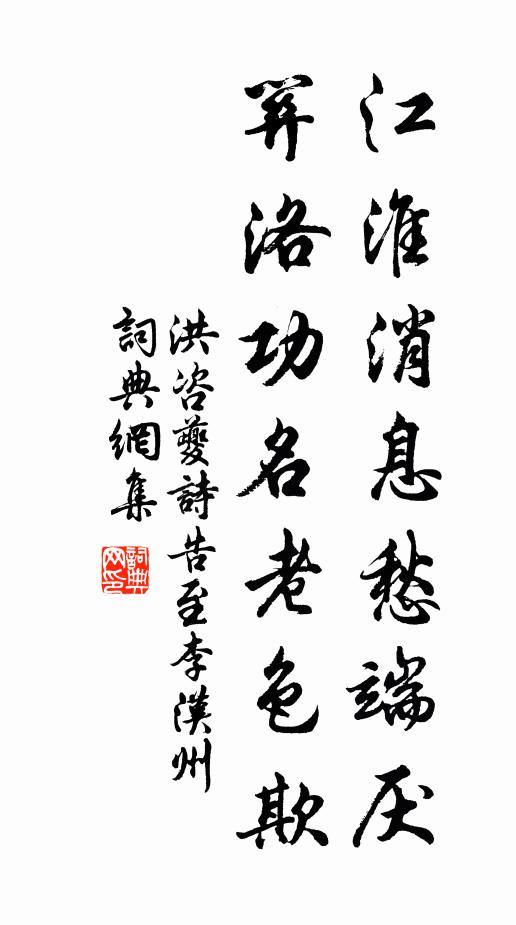 江淮消息愁端厌
关洛功名老色欺
洪咨夔詩告至李漢州
詞典網集
詞典
网印